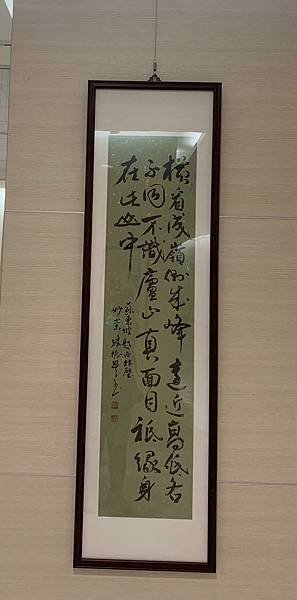 橫看成嶺側成峰遠近高低各
不同不識廬山真面目祇緣身
在此山中
蘇東坡題西林壁
妙崇